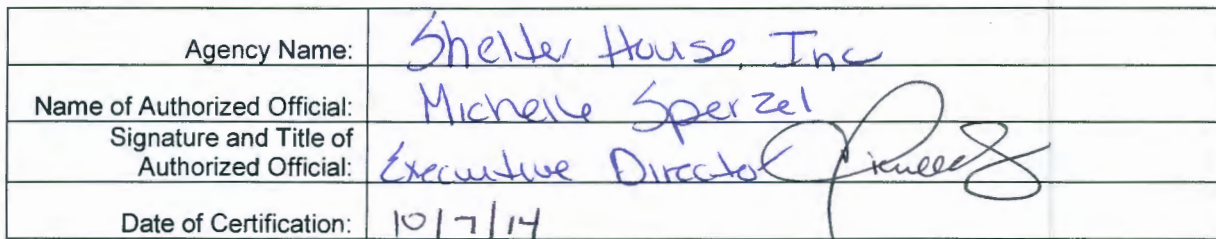 Agency Name: Shelter House, Inc
Name of Authorized Official: Michelle Sperzel
Signature and Title of
Authorized Official: Executive Director
Date of Certification: 10/7/14